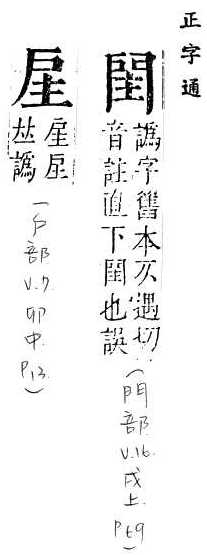 正字通
閏
譌字舊本遇切
音註直下閏也誤
(門部 V.16. 戌上. P69)
𠀤譌
(戶部 V.7. 卯中. P13.)